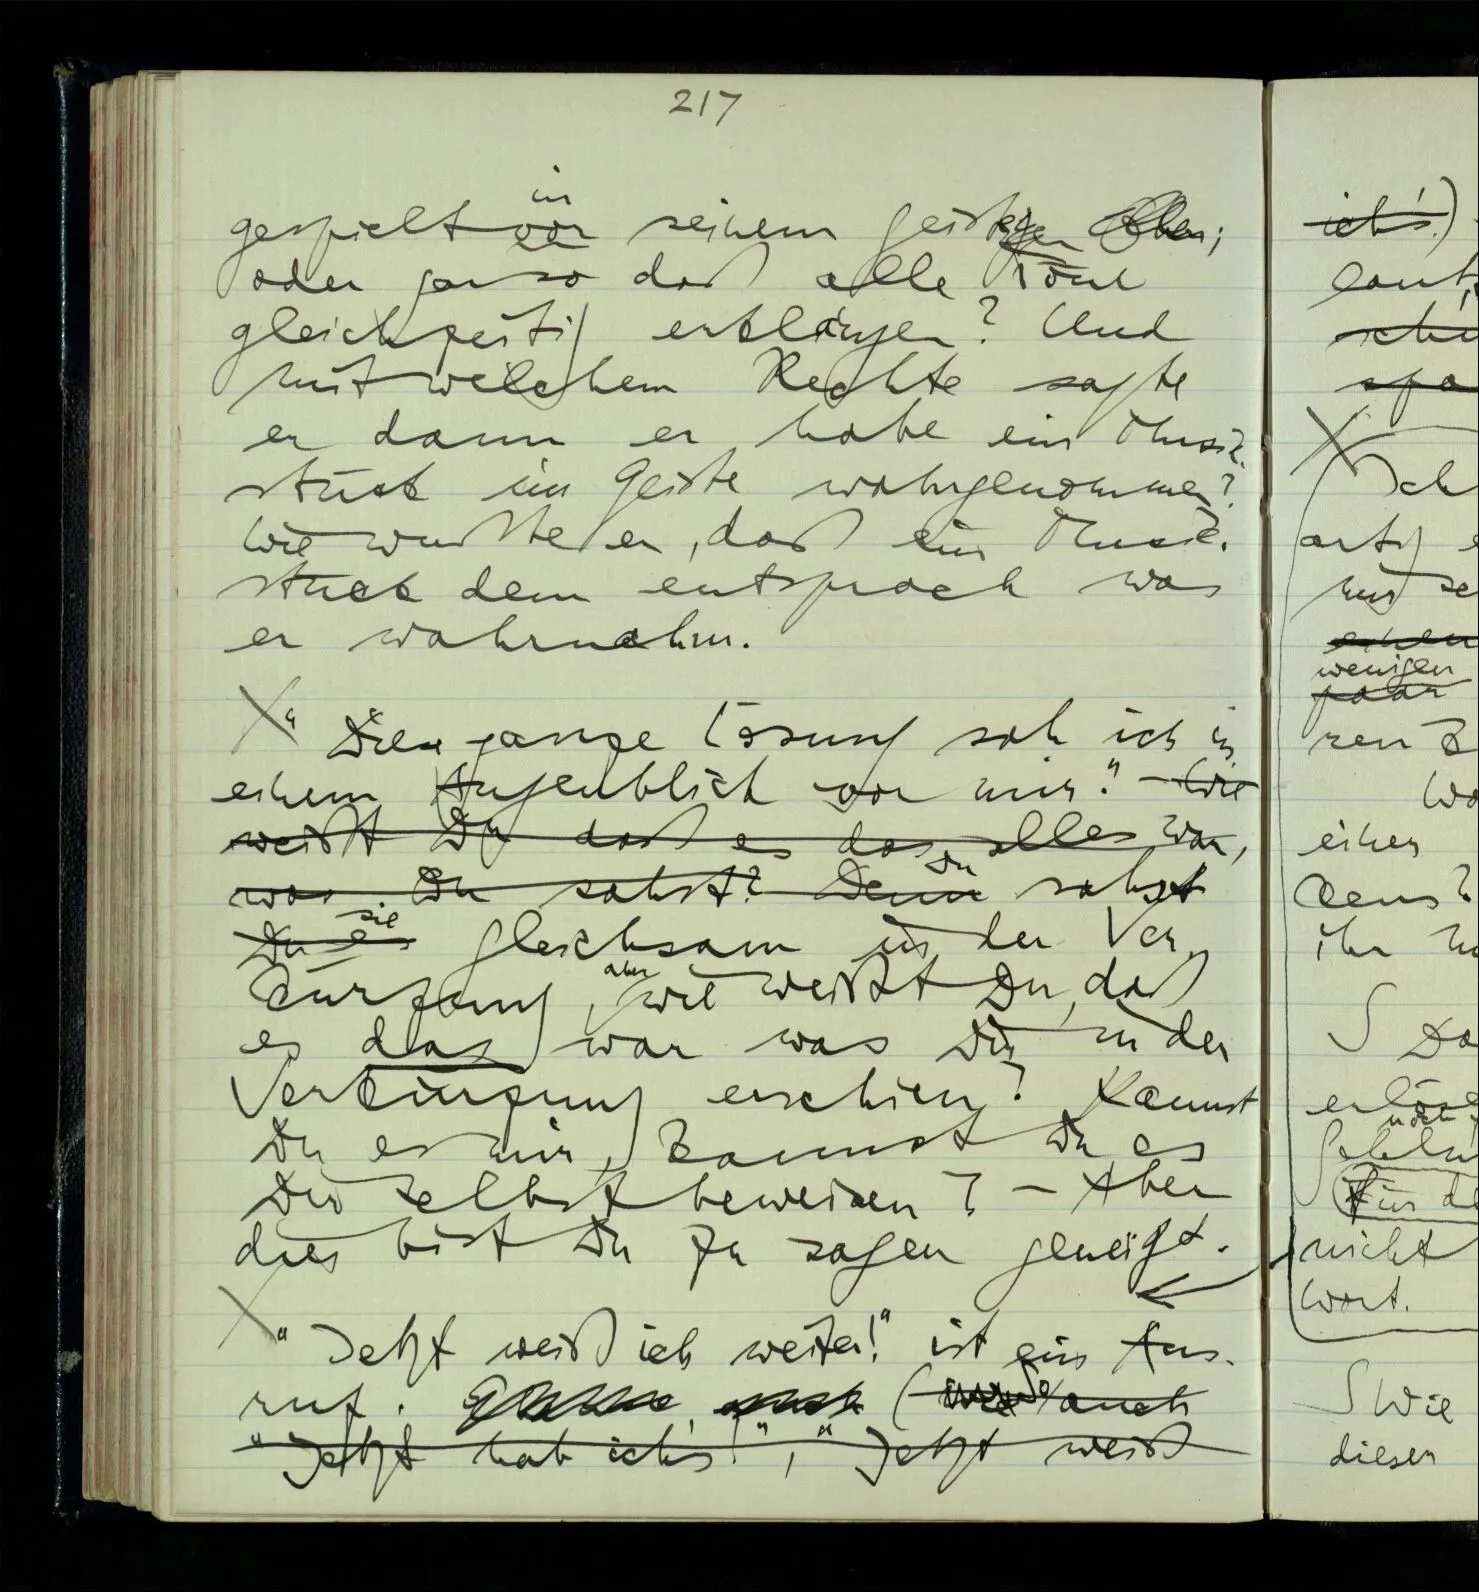 217
in
gespielt vor seinem geistigen Ohr;
oder gar so daß alle Töne
gleichzeitig erklingen? Und
mit welchem Rechte sagte
er dann er habe ein Musik-
stück im Geiste wahrgenommen?
Wie wußte er, daß ein Musik-
stück dem entsprach was
er wahrnahm.
"Die ganze Lösung sah ich in
einem Augenblick vor mir." – Wie
weißt Du daß es das alles war,
was Du sahst? Denn Du sahst
Du es sie gleichsam in der Ver-
kürzung, aber wie weißt Du, daß
es das war was Dir in der
Verkürzung erschien? Kannst
Du es mir, kannst Du es
Dir selbst beweisen? – Aber
dies bist Du zu sagen geneigt.
"Jetzt weiß ich weiter!" ist ein Aus-
ruf. (auch
"Jetzt hab ich's!", "Jetzt weiß
ich's.)
laut
Ich
artig
wenigen
paar
einer
ihr
nicht
Wort.
Wie
dieser